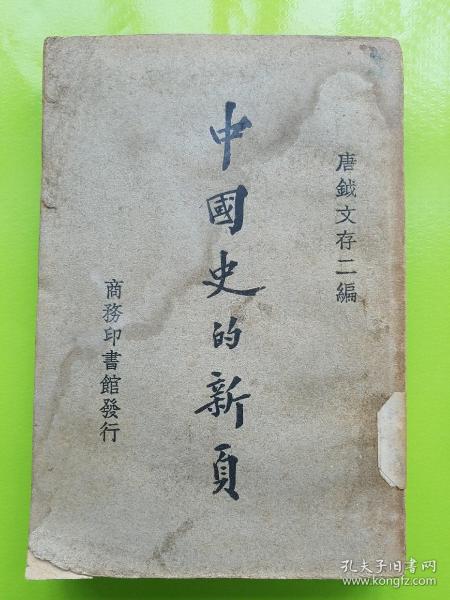 唐鉞文存二編
中國史的新頁
商務印書館發行
孔夫子旧书网
www.kongfz.com